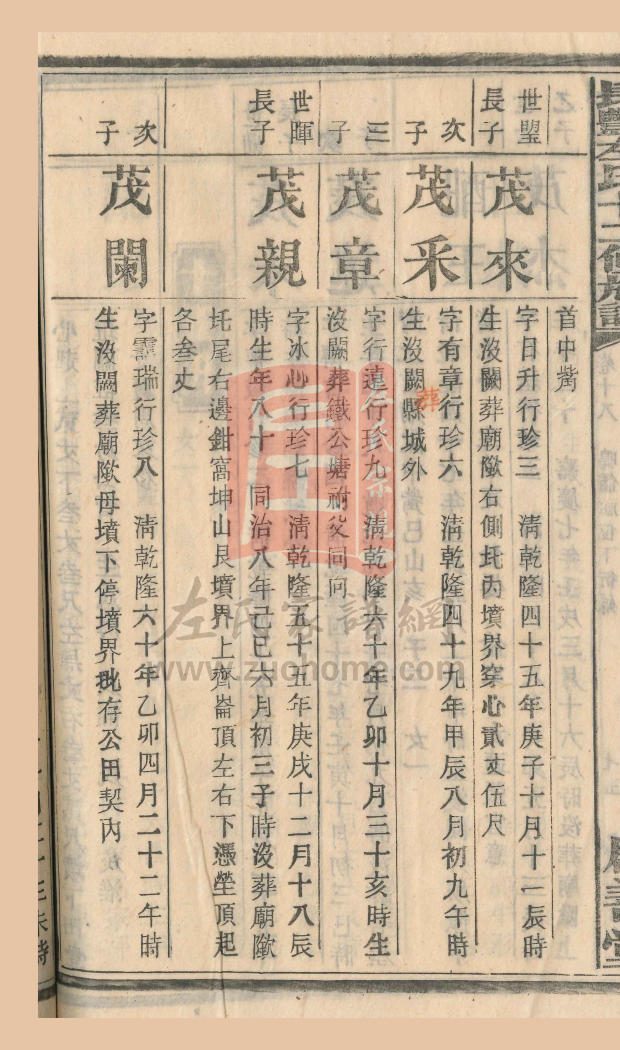 首中嶲
世琞長子
茂來
字日升行珍三　清乾隆四十五年庚子十月十一辰時
生沒闕葬廟歘右側圫內墳界穿心貳丈伍尺
次子
茂采
字有章行珍六　清乾隆四十九年甲辰八月初九午時
生沒闕葬縣城外
三子
茂章
字行遠行珍九　清乾隆六十年乙卯十月三十亥時生
沒闕葬鐵公塘祔父同向
世暉長子
茂親
字冰心行珍七　清乾隆五十五年庚戌十二月十八辰
時生年八十　同治八年己巳六月初三子時沒葬廟歘
圫尾右邊鉗窩坤山艮墳界上齊崙頂左右下憑塋頂起
各叁丈
次子
茂闌
字靈瑞行珍八　清乾隆六十年乙卯四月二十二午時
生沒闕葬廟歘母墳下停墳界批存公田契內
左氏家譜網
www.zuohome.com